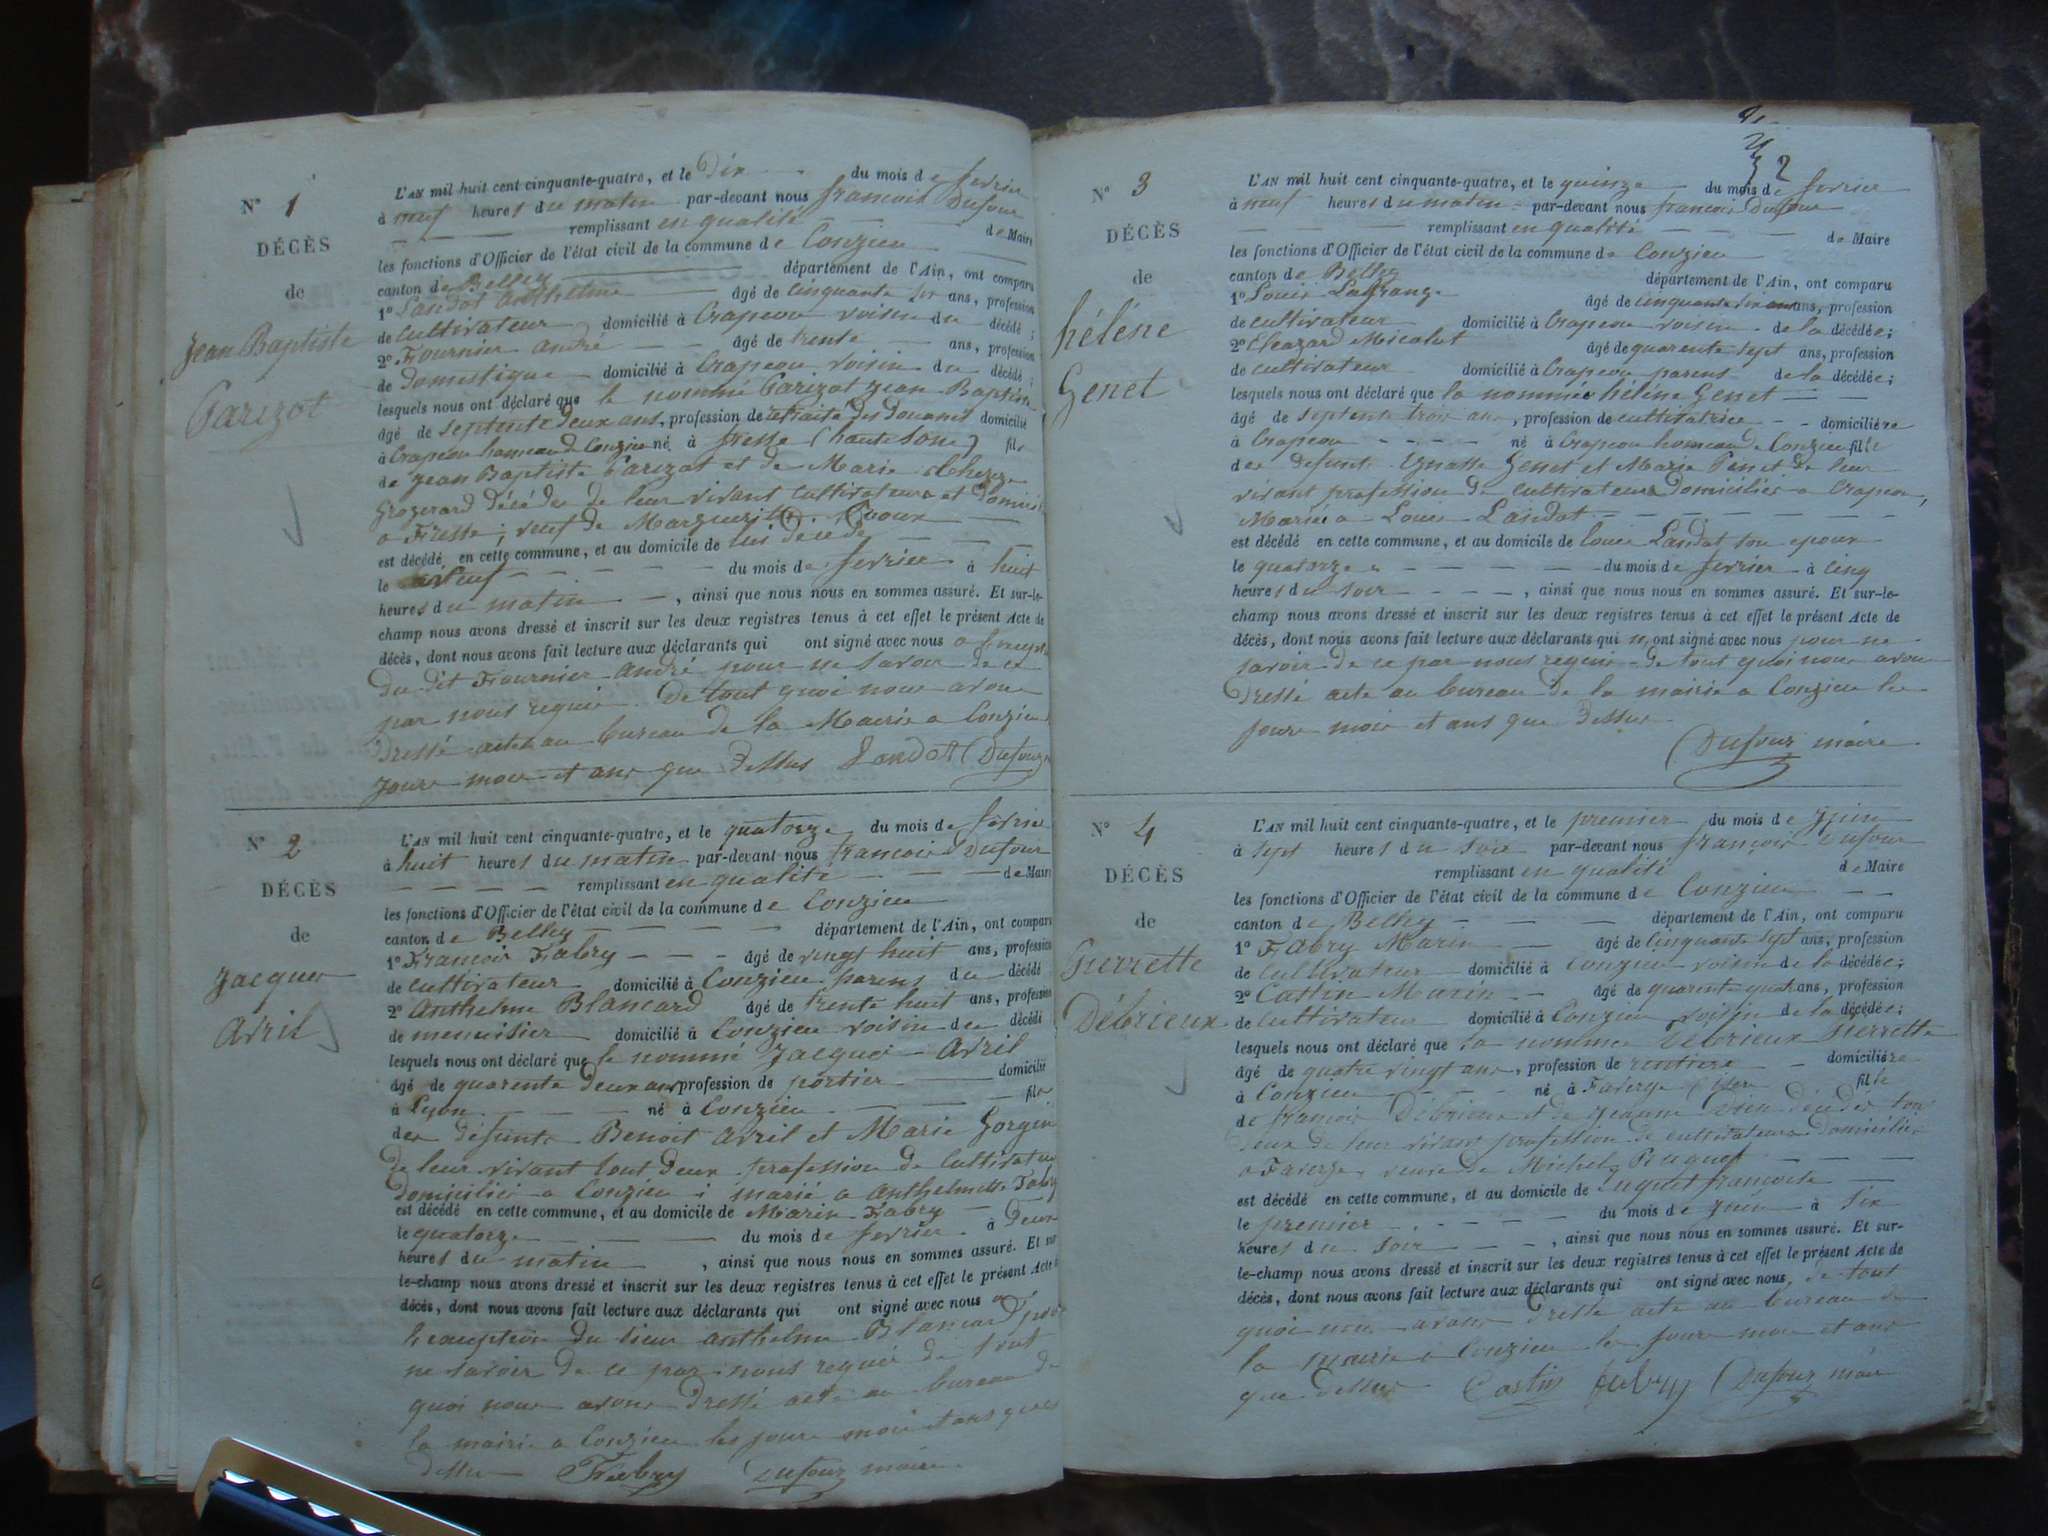 N° 1
DÉCÈS
de
Jean Baptiste
Parizot
L'AN mil huit cent cinquante-quatre, et le Dix du mois de fevrier
à neuf heures du matin par-devant nous francois Dufour
remplissant en qualité de Maire
les fonctions d'Officier de l'état civil de la commune de Conzieu
canton de Belley département de l'Ain, ont comparu
1° Landot Anthelme âgé de cinquante six ans, profession
de cultivateur domicilié à Crapeou voisin du décédé;
2° Fournier André âgé de trente ans, profession
de domestique domicilié à Crapeou voisin du décédé;
lesquels nous ont déclaré que le nommé Parizot Jean Baptiste
âgé de septente deux ans, profession de retraité des douanes domicilié
à Crapeou hameau d Conzieu né à fresse (haute Sone) fils
de Jean Baptiste Parizot et de Marie
décédés de leur vivant cultivateurs et domicil
a Fresse; veuf de Marguerite
est décédé en cette commune, et au domicile de lui décédé
le neuf du mois de fevrier à huit
heures du matin, ainsi que nous nous en sommes assuré. Et sur-le-
champ nous avons dressé et inscrit sur les deux registres tenus à cet effet le présent Acte de
décès, dont nous avons fait lecture aux déclarants qui ont signé avec nous
du dit Fournier André pour ne savoir de ce
par nous requis. De tout quoi nous avons
Dressé acte au bureau de la Mairie a Conzieu
jours mois et ans que Dessus Landot Dufour
N° 2
DÉCÈS
de
Jacques
Avril
L'AN mil huit cent cinquante-quatre, et le quatorze du mois de fevrier
à huit heures du matin par-devant nous francois Dufour
remplissant en qualité de Maire
les fonctions d'Officier de l'état civil de la commune de Conzieu
canton de Belley département de l'Ain, ont comparu
1° Francois Fabry âgé de vingt huit ans, profession
de cultivateur domicilié à Conzieu parens du décédé
2° Anthelme Blancard âgé de trente huit ans, profession
de menuisier domicilié à Conzieu voisin du décédé
lesquels nous ont déclaré que le nommé Jacques Avril
âgé de quarente Deux ans profession de portier domicilié
à Lyon né à Conzieu fils
des défunts Benoit Avril et Marie Gorgin
de leur vivant tout deux profession de Cultivateur
domiciliés a Conzieu; marié a Anthelmette Fabry
est décédé en cette commune, et au domicile de Marin Fabry
le quatorze du mois de fevrier à Deux
heures du matin, ainsi que nous nous en sommes assuré. Et sur-
le-champ nous avons dressé et inscrit sur les deux registres tenus à cet effet le présent Acte
décès, dont nous avons fait lecture aux déclarants qui ont signé avec nous a
l'exception du sieur anthelme Blancard pour
ne savoir de ce par nous requis de tout
quoi nous avons Dressé acte au bureau de
la mairie a Conzieu les jours mois et ans que
dessus Fabry Dufour maire
N° 3
DÉCÈS
de
hélène
Genet
2
L'AN mil huit cent cinquante-quatre, et le quinze du mois de fevrier
à neuf heures du matin par-devant nous francois Dufour
remplissant en qualité de Maire
les fonctions d'Officier de l'état civil de la commune de Conzieu
canton de Belley département de l'Ain, ont comparu
1° Louis Lagrange âgé de cinquante six ans, profession
de cultivateur domicilié à Crapeou voisin de la décédée;
2° Eleazard Micalet âgé de quarente sept ans, profession
de cultivateur domicilié à Crapeou parens de la décédée;
lesquels nous ont déclaré que la nommée hélène Genet
âgé de septente trois ans, profession de cultivatrice domiciliée
à Crapeou né à Crapeou hameau d Conzieu fille
des defunts Genet et Marie Penet de leur
vivant profession de cultivateurs domiciliés a Crapeou,
Mariée a Louis Landot
est décédé en cette commune, et au domicile de louis Landot son epoux
le quatorze du mois de fevrier à cinq
heures du soir, ainsi que nous nous en sommes assuré. Et sur-le-
champ nous avons dressé et inscrit sur les deux registres tenus à cet effet le présent Acte de
décès, dont nous avons fait lecture aux déclarants qui n'ont signé avec nous pour ne
savoir de ce par nous requis de tout quoi nous avons
Dressé acte au bureau de la mairie a Conzieu les
jours mois et ans que Dessus
Dufour maire
N° 4
DÉCÈS
de
Pierrette
Débrieux
L'AN mil huit cent cinquante-quatre, et le premier du mois de Juin
à sept heures du soir par-devant nous françois Dufour
remplissant en qualité de Maire
les fonctions d'Officier de l'état civil de la commune de Conzieu
canton de Belley département de l'Ain, ont comparu
1° Fabry Marin âgé de cinquante sept ans, profession
de cultivateur domicilié à Conzieu voisin de la décédée;
2° Castin Marin âgé de quarente quat ans, profession
de cultivateur domicilié à Conzieu voisin de la décédée;
lesquels nous ont déclaré que la nommée Débrieux Pierrette
âgé de quatre vingt ans, profession de rentière domiciliée
à Conzieu né à Faverge fille
de francois Débrieux et de Jeanne décédés tous
deux de leur vivant profession de cultivateurs domiciliés
a Faverge, veuve de Michel Puquet
est décédé en cette commune, et au domicile de Puquet francoise
le premier du mois de Juin à six
heures du soir, ainsi que nous nous en sommes assuré. Et sur-
le-champ nous avons dressé et inscrit sur les deux registres tenus à cet effet le présent Acte de
décès, dont nous avons fait lecture aux déclarants qui ont signé avec nous, de tout
quoi nous avons Dressé acte au bureau de
la mairie a Conzieu les jours mois et ans
que dessus Castin fabry Dufour maire